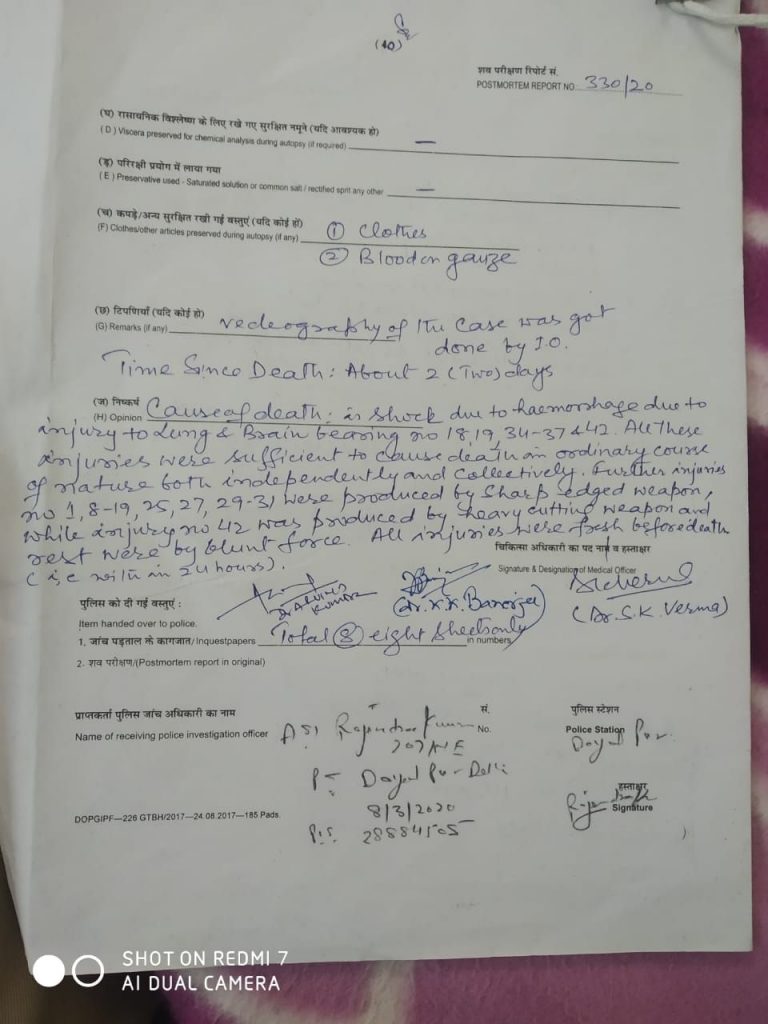 (40)
शव परीक्षण रिपोर्ट सं.
POSTMORTEM REPORT NO. 330/20
(घ) रासायनिक विश्लेष्ण के लिए रखे गए सुरक्षित नमूने (यदि आवश्यक हो)
( D ) Viscera preserved for chemical analysis during autopsy (if required) —
(ड़) परिरक्षी प्रयोग में लाया गया
( E ) Preservative used - Saturated solution or common salt / rectified sprit any other —
(च) कपड़े/अन्य सुरक्षित रखी गई वस्तुएं (यदि कोई हों)
(F) Clothes/other articles preserved during autopsy (if any) ① Clothes
② Blood on gauze
(छ) टिपणियाँ (यदि कोई हो)
(G) Remarks (if any) vedeography of the case was got
done by I.O.
Time Since Death: About 2 (Two) days
(ज) निष्कर्ष
(H) Opinion Cause of death: is shock due to haemorshage due to
injury to Lung & Brain bearing no 18,19, 34-37 & 42. All These
injuries were sufficient to cause death in ordinary course
of nature both independently and collectively. Further injuries
no 1, 8-19, 25, 27, 29-31 were produced by Sharp edged weapon,
while injury no 42 was produced by heavy cutting weapon and
rest were by blunt force. All injuries were fresh before death
(i,e within 24 hours).
चिकित्सा अधिकारी का पद नाम व हस्ताक्षर
Signature & Designation of Medical Officer
Kumar
(Dr. K.K. Banerjee)
(Dr. S.K. Verma)
पुलिस को दी गई वस्तुए :
Item handed over to police.
1. जांच पड़ताल के कागजात/Inquestpapers Total ⑧ eight sheets only in numbers
2. शव परीक्षण/(Postmortem report in original)
प्राप्तकर्ता पुलिस जांच अधिकारी का नाम सं. पुलिस स्टेशन
Name of receiving police investigation officer ASI No. Police Station
Dayal Pur
PS Dayal Pur Delhi
8/3/2020
हस्ताक्षर
Signature
DOPGIPF—226 GTBH/2017—24.08.2017—185 Pads.
28884505
SHOT ON REDMI 7
AI DUAL CAMERA